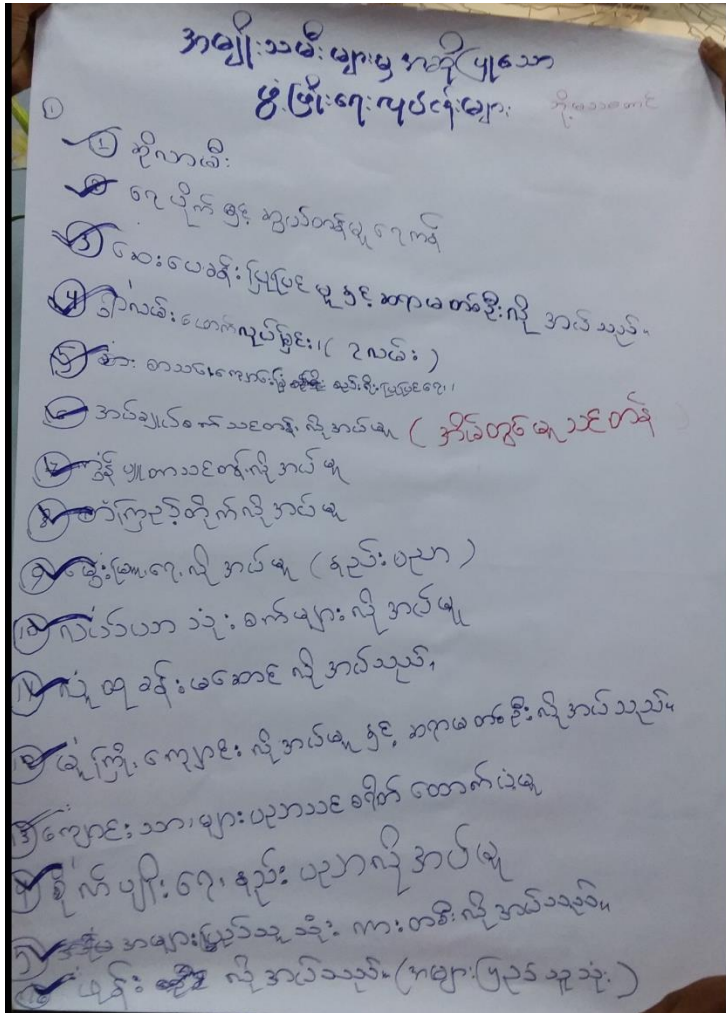 အမျိုးသမီးများမှ အဆိုပြုသော
ဖွံ့ဖြိုးရေးလုပ်ငန်းများ
①
① ဆိုလာမီး
② ရေပိုက် နှင့် သွယ်တန်းမှု ရေကန်
③ ဆေးပေးခန်း ပြုပြင်မှု နှင့် ဆရာမတစ်ဦးလို အပ်သည်။
④ လမ်းဖောက်လုပ်ခြင်း၊ ( ၃လမ်း )
⑤ စာသင်ကျောင်း ပြုပြင်ရေး၊
⑥ အပ်ချုပ်စက်သင်တန်း လိုအပ်မှု ( အိမ်တွင်းမှု သင်တန်း
⑦ ကွန်ပျူတာသင်တန်းလိုအပ်မှု
⑧ စာကြည့်တိုက်လိုအပ်မှု
⑨ မွေးမြူရေး လိုအပ်မှု ( နည်းပညာ )
⑩ လယ်ယာသုံး စက်များ လိုအပ်မှု
11 လူထုခန်းမဆောင် လိုအပ်သည်၊
12 မူကြိုကျောင်း လိုအပ်မှု နှင့် ဆရာမတစ်ဦးလိုအပ်သည်။
13 ကျောင်းသားများပညာသင်စရိတ် ထောက်ပံ့မှု
14 စိုက်ပျိုးရေး နည်းပညာလိုအပ်မှု
15 အများပြည်သူသုံး ကားတစီးလိုအပ်သည်။
16 ဖုန်း လိုအပ်သည်။ (အများပြည်သူသုံး)